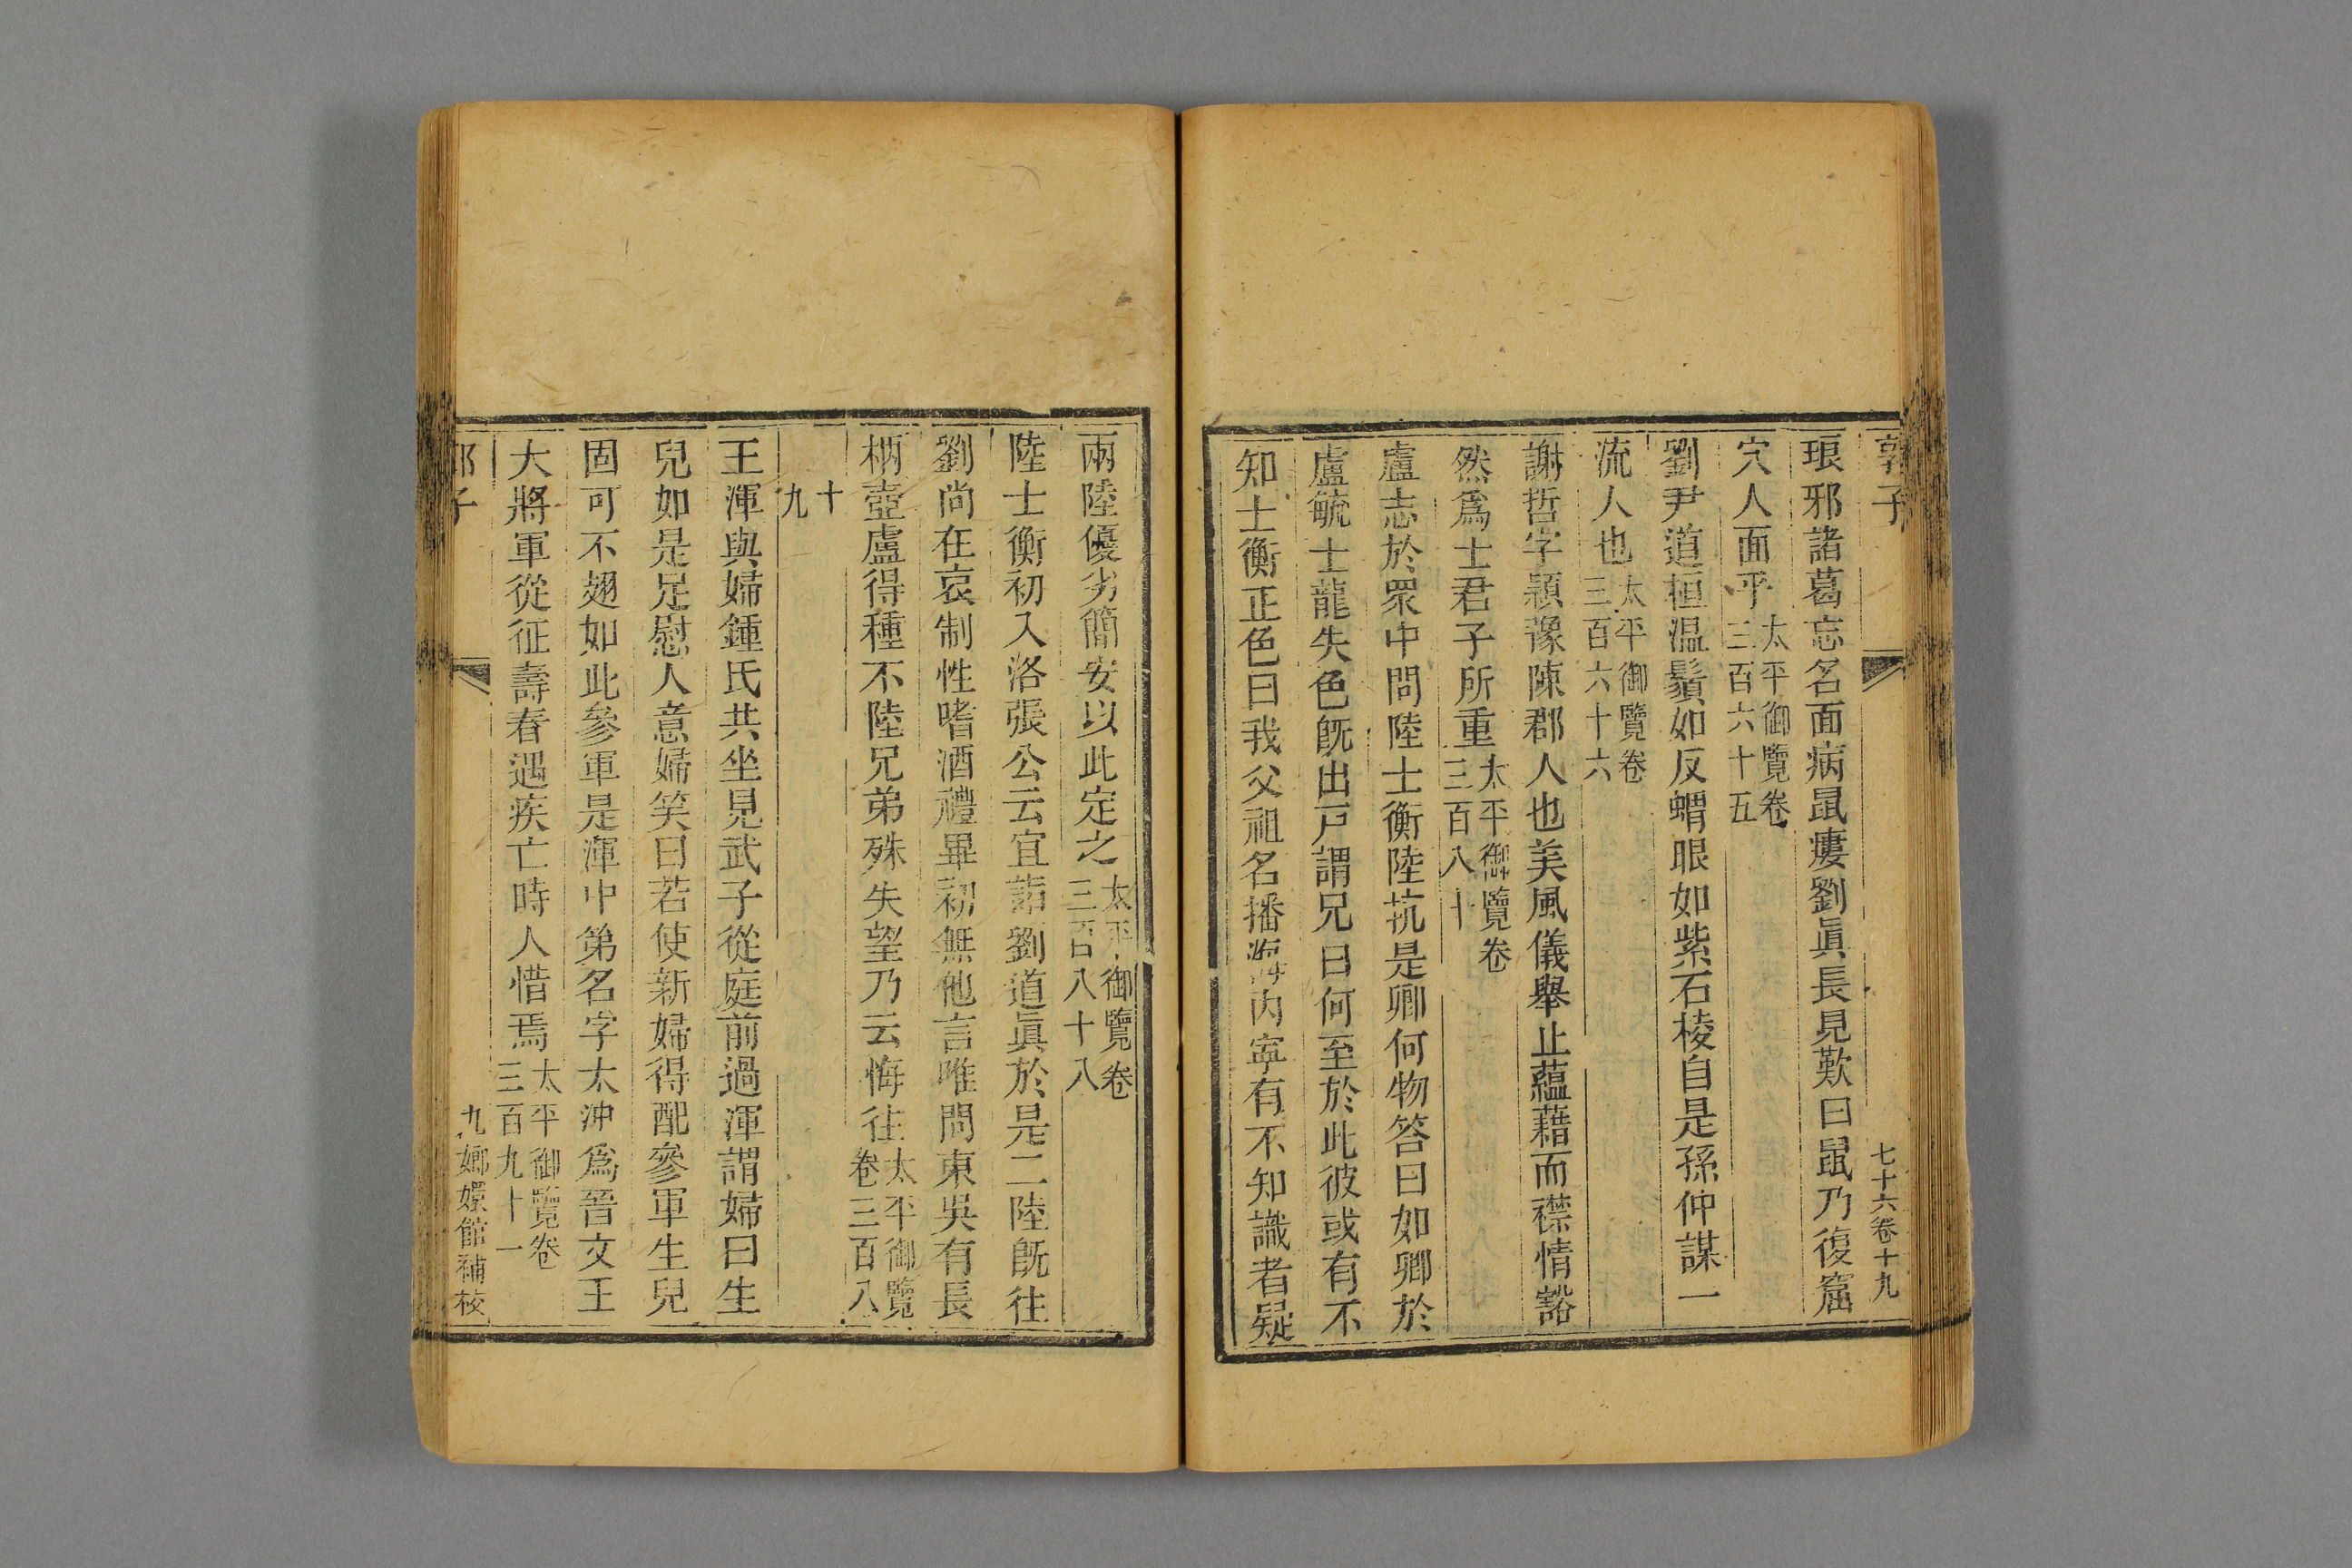 郭子
七十六卷十九
琅邪諸葛忘名面病鼠瘻劉眞長見歎曰鼠乃復窟
穴人面乎太平御覽卷三百六十五
劉尹道桓温鬚如反蝟眼如紫石棱自是孫仲謀一
流人也太平御覽卷三百六十六
謝哲字穎豫陳郡人也美風儀舉止蘊藉而襟情豁
然爲士君子所重太平御覽卷三百八十
盧志於眾中問陸士衡陸抗是卿何物答曰如卿於
盧毓士龍失色旣出戸謂兄曰何至於此彼或有不
知士衡正色曰我父祖名播海內寜有不知識者疑
兩陸優劣簡安以此定之太平御覽卷三百八十八
陸士衡初入洛張公云宜詣劉道眞於是二陸旣往
劉尚在哀制性嗜酒禮畢初無他言唯問東吳有長
柄壺盧得種不陸兄弟殊失望乃云悔往太平御覽卷三百八
十九
王渾與婦鍾氏共坐見武子從庭前過渾謂婦曰生
兒如是足慰人意婦笑曰若使新婦得配參軍生兒
固可不翅如此參軍是渾中弟名字太沖爲晉文王
大將軍從征壽春遇疾亡時人惜焉太平御覽卷三百九十一
郭子
九嫏嬛館補校